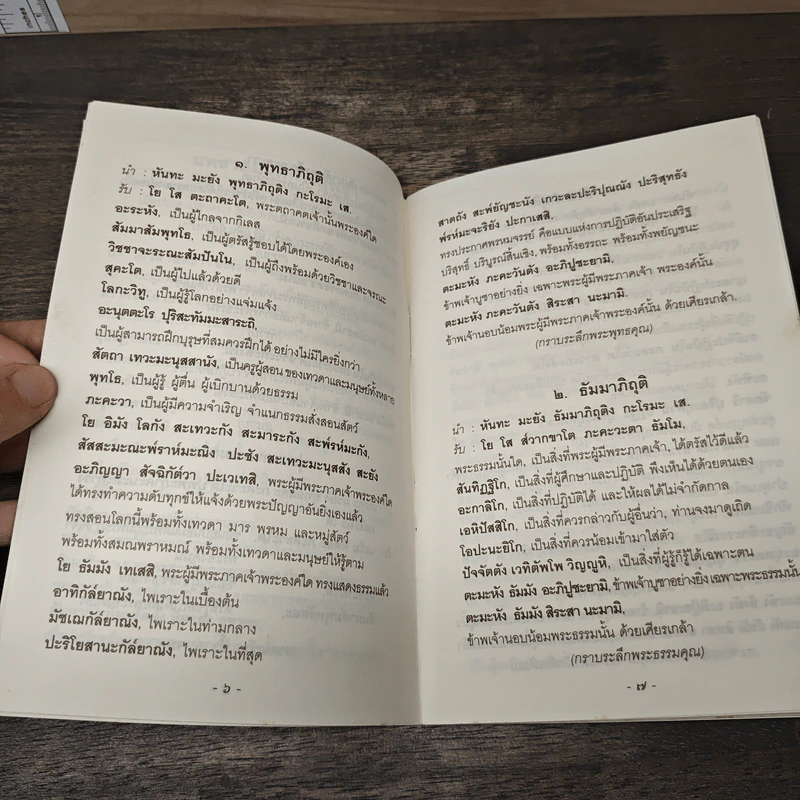 inches
๑. พุทธาภิถุติ
นำ : หันทะ มะยัง พุทธาภิถุติง กะโรมะ เส.
รับ : โย โส ตะถาคะโต, พระตถาคตเจ้านั้นพระองค์ใด
อะระหัง, เป็นผู้ไกลจากกิเลส
สัมมาสัมพุทโธ, เป็นผู้ตรัสรู้ชอบได้โดยพระองค์เอง
วิชชาจะระณะสัมปันโน, เป็นผู้ถึงพร้อมด้วยวิชชาและจรณะ
สุคะโต, เป็นผู้ไปแล้วด้วยดี
โลกะวิทู, เป็นผู้รู้โลกอย่างแจ่มแจ้ง
อะนุตตะโร ปุริสะทัมมะสาระถิ,
เป็นผู้สามารถฝึกบุรุษที่สมควรฝึกได้ อย่างไม่มีใครยิ่งกว่า
สัตถา เทวะมะนุสสานัง, เป็นครูผู้สอน ของเทวดาและมนุษย์ทั้งหลาย
พุทโธ, เป็นผู้รู้ ผู้ตื่น ผู้เบิกบานด้วยธรรม
ภะคะวา, เป็นผู้มีความจำเริญ จำแนกธรรมสั่งสอนสัตว์
โย อิมัง โลกัง สะเทวะกัง สะมาระกัง สะพ๎รห๎มะกัง,
สัสสะมะณะพ๎ราห๎มะณิง ปะชัง สะเทวะมะนุสสัง สะยัง
อะภิญญา สัจฉิกัต๎วา ปะเวเทสิ, พระผู้มีพระภาคเจ้าพระองค์ใด
ได้ทรงทำความดับทุกข์ให้แจ้งด้วยพระปัญญาอันยิ่งเองแล้ว
ทรงสอนโลกนี้พร้อมทั้งเทวดา มาร พรหม และหมู่สัตว์
พร้อมทั้งสมณพราหมณ์ พร้อมทั้งเทวดาและมนุษย์ให้รู้ตาม
โย ธัมมัง เทเสสิ, พระผู้มีพระภาคเจ้าพระองค์ใด ทรงแสดงธรรมแล้ว
อาทิกัล๎ยาณัง, ไพเราะในเบื้องต้น
มัชเฌกัล๎ยาณัง, ไพเราะในท่ามกลาง
ปะริโยสานะกัล๎ยาณัง, ไพเราะในที่สุด
- ๖ -
สาตถัง สะพ๎ยัญชะนัง เกวะละปะริปุณณัง ปะริสุทธัง
พ๎รห๎มะจะริยัง ปะกาเสสิ,
ทรงประกาศพรหมจรรย์ คือแบบแห่งการปฏิบัติอันประเสริฐ
บริสุทธิ์ บริบูรณ์สิ้นเชิง, พร้อมทั้งอรรถะ พร้อมทั้งพยัญชนะ
ตะมะหัง ภะคะวันตัง อะภิปูชะยามิ,
ข้าพเจ้าบูชาอย่างยิ่ง เฉพาะพระผู้มีพระภาคเจ้า พระองค์นั้น
ตะมะหัง ภะคะวันตัง สิระสา นะมามิ.
ข้าพเจ้านอบน้อมพระผู้มีพระภาคเจ้าพระองค์นั้น ด้วยเศียรเกล้า.
(กราบระลึกพระพุทธคุณ)
๒. ธัมมาภิถุติ
นำ : หันทะ มะยัง ธัมมาภิถุติง กะโรมะ เส.
รับ : โย โส ส๎วากขาโต ภะคะวะตา ธัมโม,
พระธรรมนั้นใด, เป็นสิ่งที่พระผู้มีพระภาคเจ้า, ได้ตรัสไว้ดีแล้ว
สันทิฏฐิโก, เป็นสิ่งที่ผู้ศึกษาและปฏิบัติ พึงเห็นได้ด้วยตนเอง
อะกาลิโก, เป็นสิ่งที่ปฏิบัติได้ และให้ผลได้ไม่จำกัดกาล
เอหิปัสสิโก, เป็นสิ่งที่ควรกล่าวกับผู้อื่นว่า, ท่านจงมาดูเถิด
โอปะนะยิโก, เป็นสิ่งที่ควรน้อมเข้ามาใส่ตัว
ปัจจัตตัง เวทิตัพโพ วิญญูหิ, เป็นสิ่งที่ผู้รู้ก็รู้ได้เฉพาะตน
ตะมะหัง ธัมมัง อะภิปูชะยามิ, ข้าพเจ้าบูชาอย่างยิ่ง เฉพาะพระธรรมนั้น
ตะมะหัง ธัมมัง สิระสา นะมามิ,
ข้าพเจ้านอบน้อมพระธรรมนั้น ด้วยเศียรเกล้า
(กราบระลึกพระธรรมคุณ)
- ๗ -